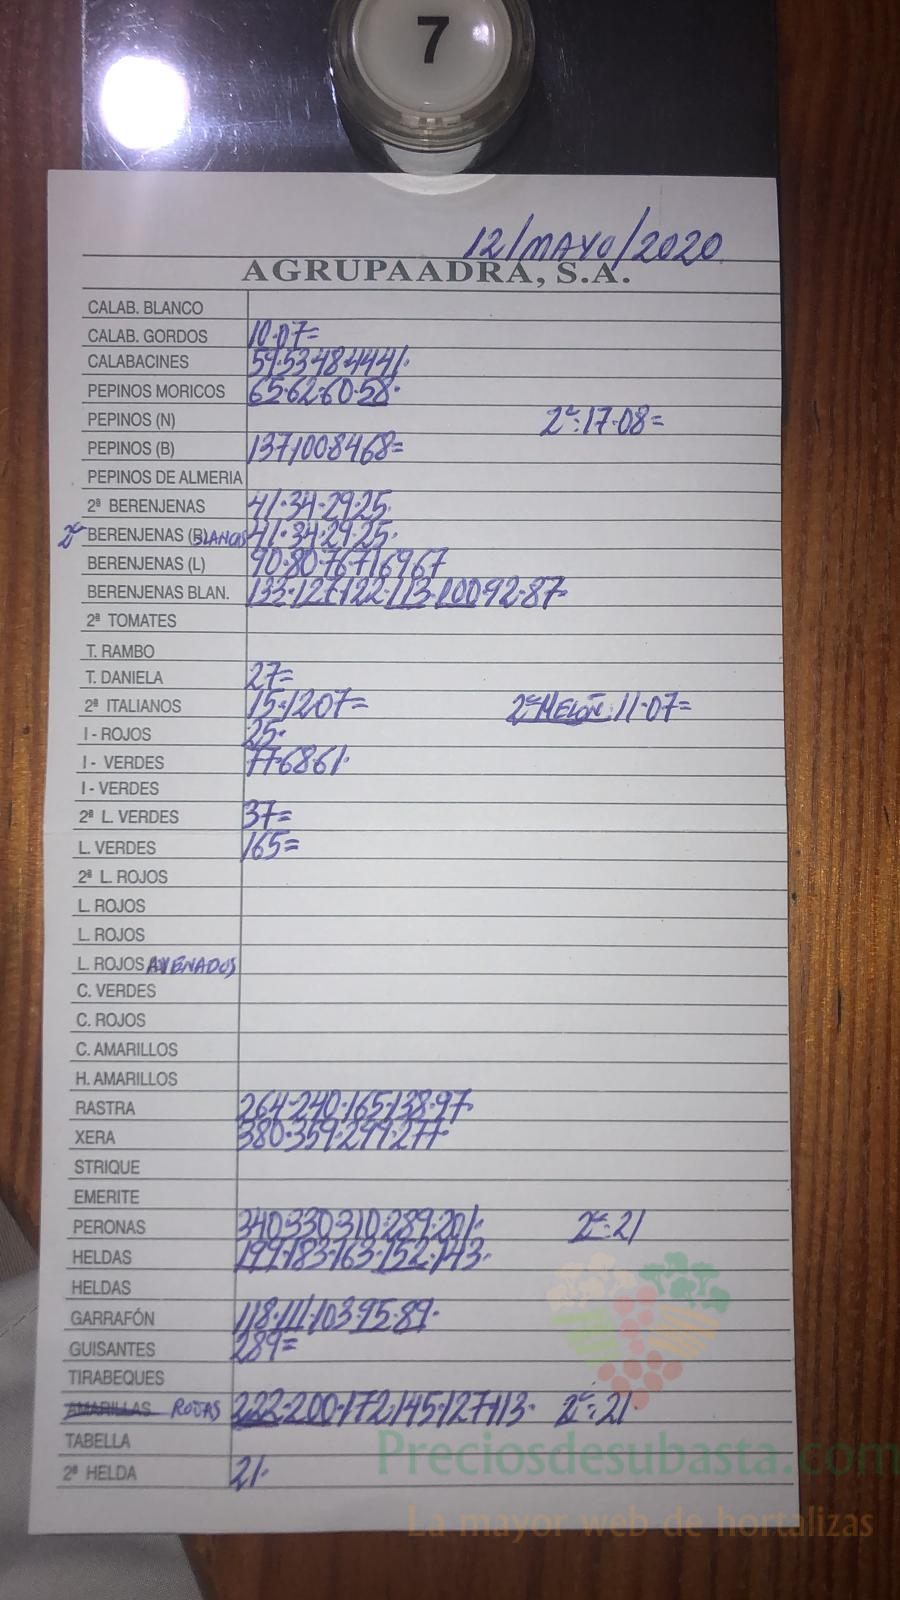 7
12/MAYO/2020
AGRUPAADRA, S.A.
CALAB. BLANCO
CALAB. GORDOS 10·07=
CALABACINES 59·53·48·44·41·
PEPINOS MORICOS 65·62·60·58·
PEPINOS (N) 2ª: 17·08=
PEPINOS (B) 137·100·84·68=
PEPINOS DE ALMERIA
2ª BERENJENAS 41·34·29·25·
2ª BERENJENAS (R) BLANCAS 41·34·29·25·
BERENJENAS (L) 90·80·76·71·69·67
BERENJENAS BLAN. 133·127·122·113·100·92·87=
2ª TOMATES
T. RAMBO
T. DANIELA 27=
2ª ITALIANOS 15·12·07= 2ª MELÓN: 11·07=
I - ROJOS 25·
I - VERDES 77·68·61·
I - VERDES
2ª L. VERDES 37=
L. VERDES 165=
2ª L. ROJOS
L. ROJOS
L. ROJOS
L. ROJOS AVENADOS
C. VERDES
C. ROJOS
C. AMARILLOS
H. AMARILLOS
RASTRA 264·240·165·138·97·
XERA 380·359·299·277·
STRIQUE
EMERITE
PERONAS 340·330·310·289·201· 2ª: 21
HELDAS 199·183·163·152·143·
HELDAS
GARRAFÓN 118·111·103·95·89·
GUISANTES 289=
TIRABEQUES
AMARILLAS ROJAS 222·200·172·145·127·113· 2ª: 21·
TABELLA
2ª HELDA 21·
Preciosdesubasta.com
La mayor web de hortalizas